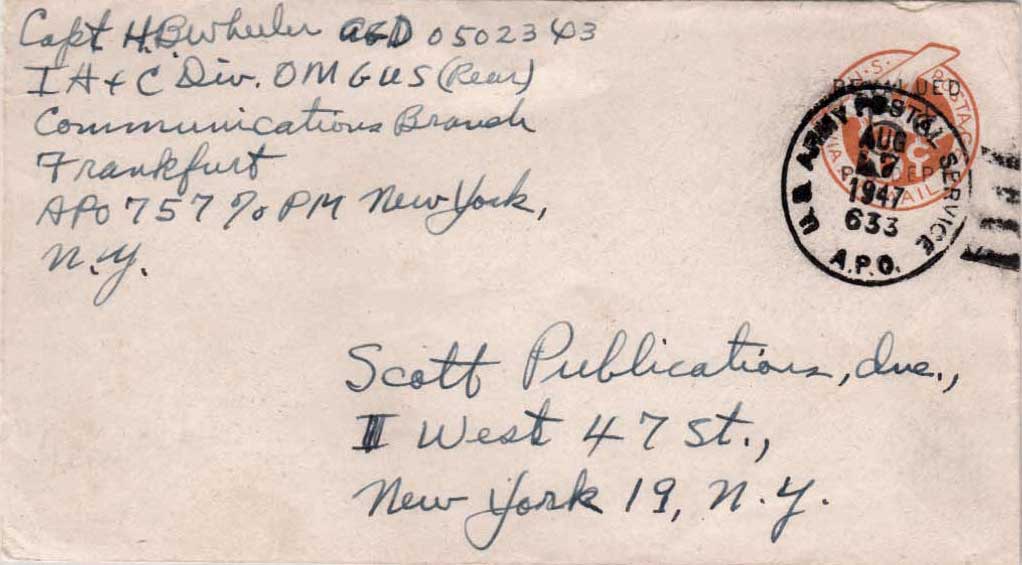 Capt. H.B. Wheeler AGD 0502343
I A + C Div. OMGUS (Rear)
Communications Branch
Frankfurt
APO 757 % PM New York,
N.Y.
REVALUED
U.S. POSTAGE
VIA AIR MAIL
U.S. ARMY POSTAL SERVICE
AUG
1947
633
A.P.O.
Scott Publications, Inc.,
II West 47 St.,
New York 19, N.Y.